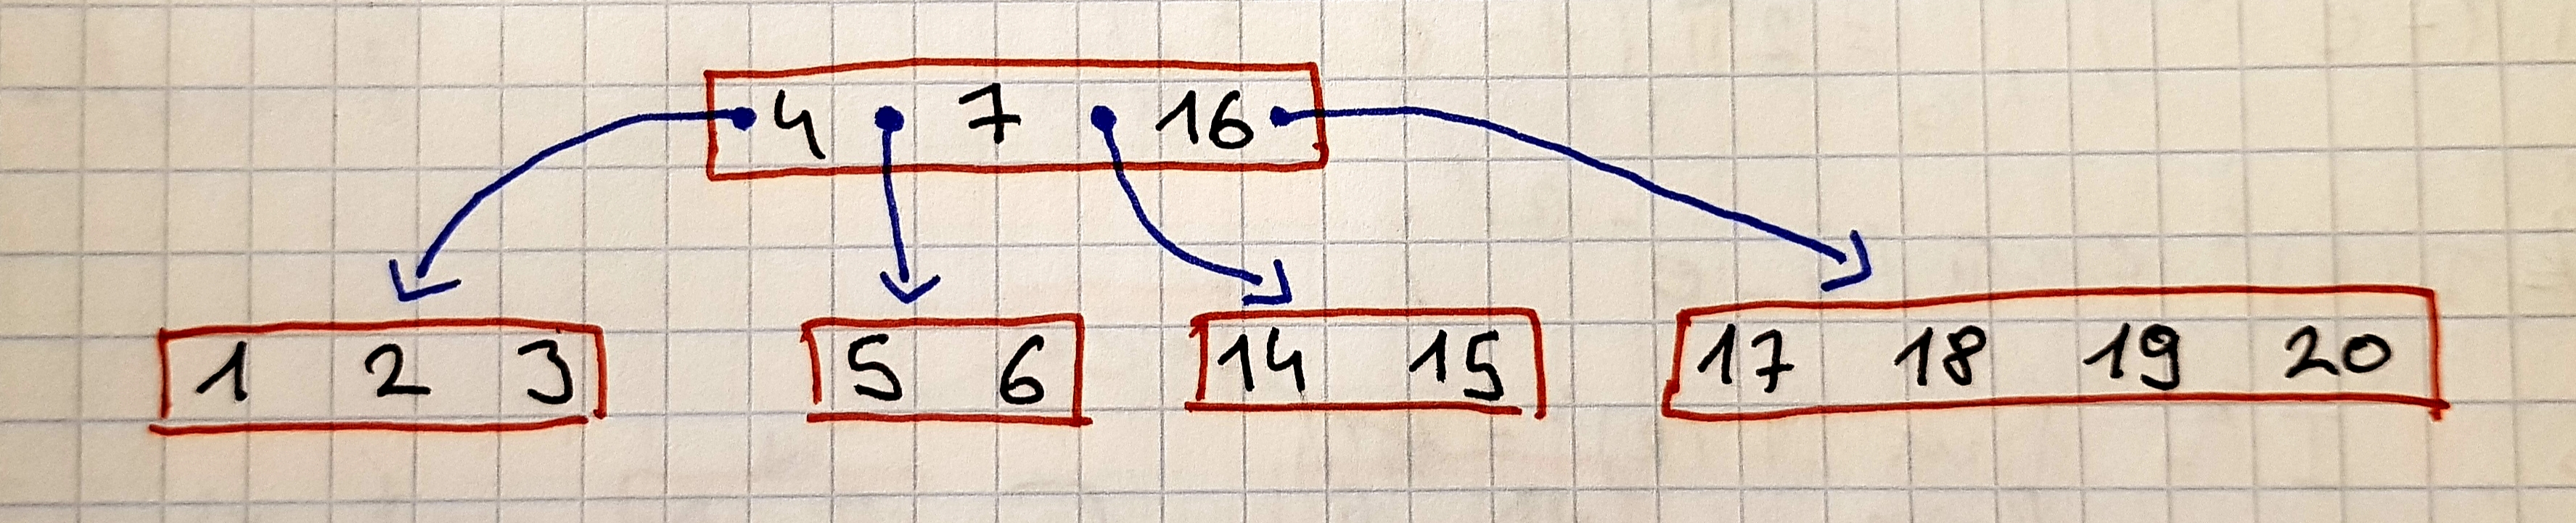 4 7 16
1 2 3 5 6 14 15 17 18 19 20